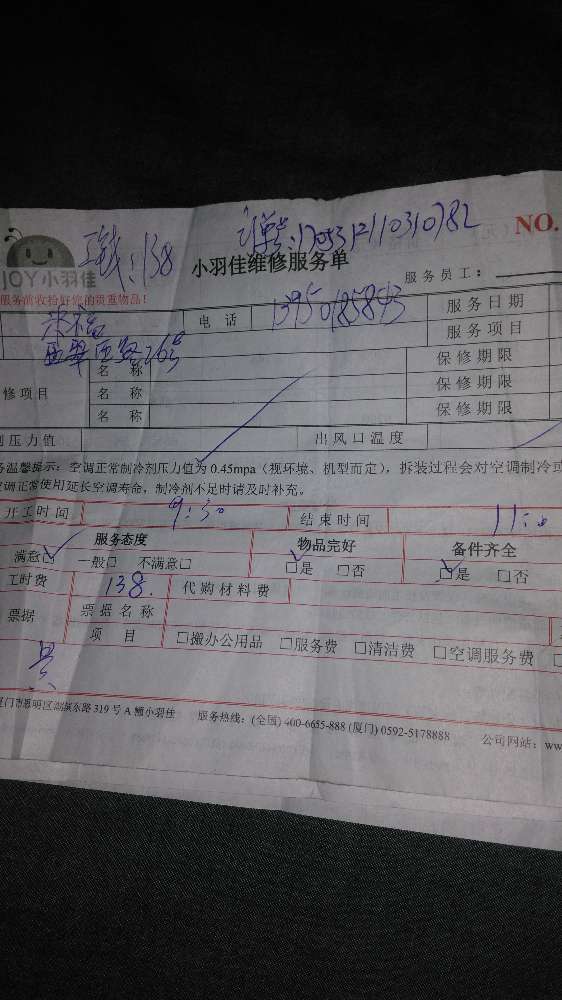 订单号:1705312110310782
138
NO.
JOY小羽佳
小羽佳维修服务单
服务员工:
服务前收拾好您的贵重物品!
电 话 13950185843 服务日期
服务项目
263号
名 称 保修期限
修项目 名 称 保修期限
名 称 保修期限
剂压力值 出风口温度
务温馨提示:空调正常制冷剂压力值为 0.45mpa(视环境、机型而定),拆装过程会对空调制冷或
空调正常使用延长空调寿命,制冷剂不足时请及时补充。
开工时间 9:30 结束时间
服务态度 物品完好 备件齐全
满意□ 一般□ 不满意□ □是 □否 □是 □否
工时费 138. 代购材料费
票据 票据名称
项 目 □搬办公用品 □服务费 □清洁费 □空调服务费
厦门市思明区湖滨东路 319 号 A 幢小羽佳 服务热线:(全国) 400-6655-888 (厦门) 0592-5178888 公司网站:ww